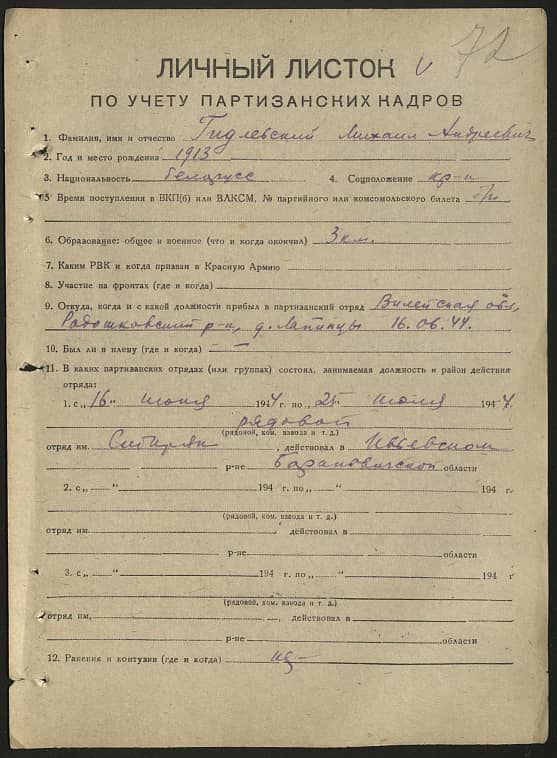 72
ЛИЧНЫЙ ЛИСТОК
ПО УЧЕТУ ПАРТИЗАНСКИХ КАДРОВ
1. Фамилия, имя и отчество Гидлевский Михаил Андреевич
2. Год и место рождения 1913
3. Национальность белорусс 4. Соцположение кр-н
5 Время поступления в ВКП(б) или ВЛКСМ, № партийного или комсомольского билета б/п
6. Образование: общее и военное (что и когда окончил) 3 кл.
7. Каким РВК и когда призван в Красную Армию
8. Участие на фронтах (где и когда)
9. Откуда, когда и с какой должности прибыл в партизанский отряд Вилейская обл,
Радошковский р-н, д. Лапинцы 16.06.44.
10. Был ли в плену (где и когда) —
11. В каких партизанских отрядах (или группах) состоял, занимаемая должность и район действия
отряда:
1. с „16" июня 1944 г. по „25" июля 1944 г.
рядовой
(рядовой, ком. взвода и т. д.)
отряд им. Сибиряк, действовал в Ивьевском
р-не Барановичской области
2. с „ " 194 г. по „ " 194 г.
(рядовой, ком. взвода и т. д.)
отряд им. , действовал в
р-не области
3. с „ " 194 г. по „ " 194 г
(рядовой, ком. взвода и т. д.)
отряд им. , действовал в
р-не области
12. Ранения и контузии (где и когда)